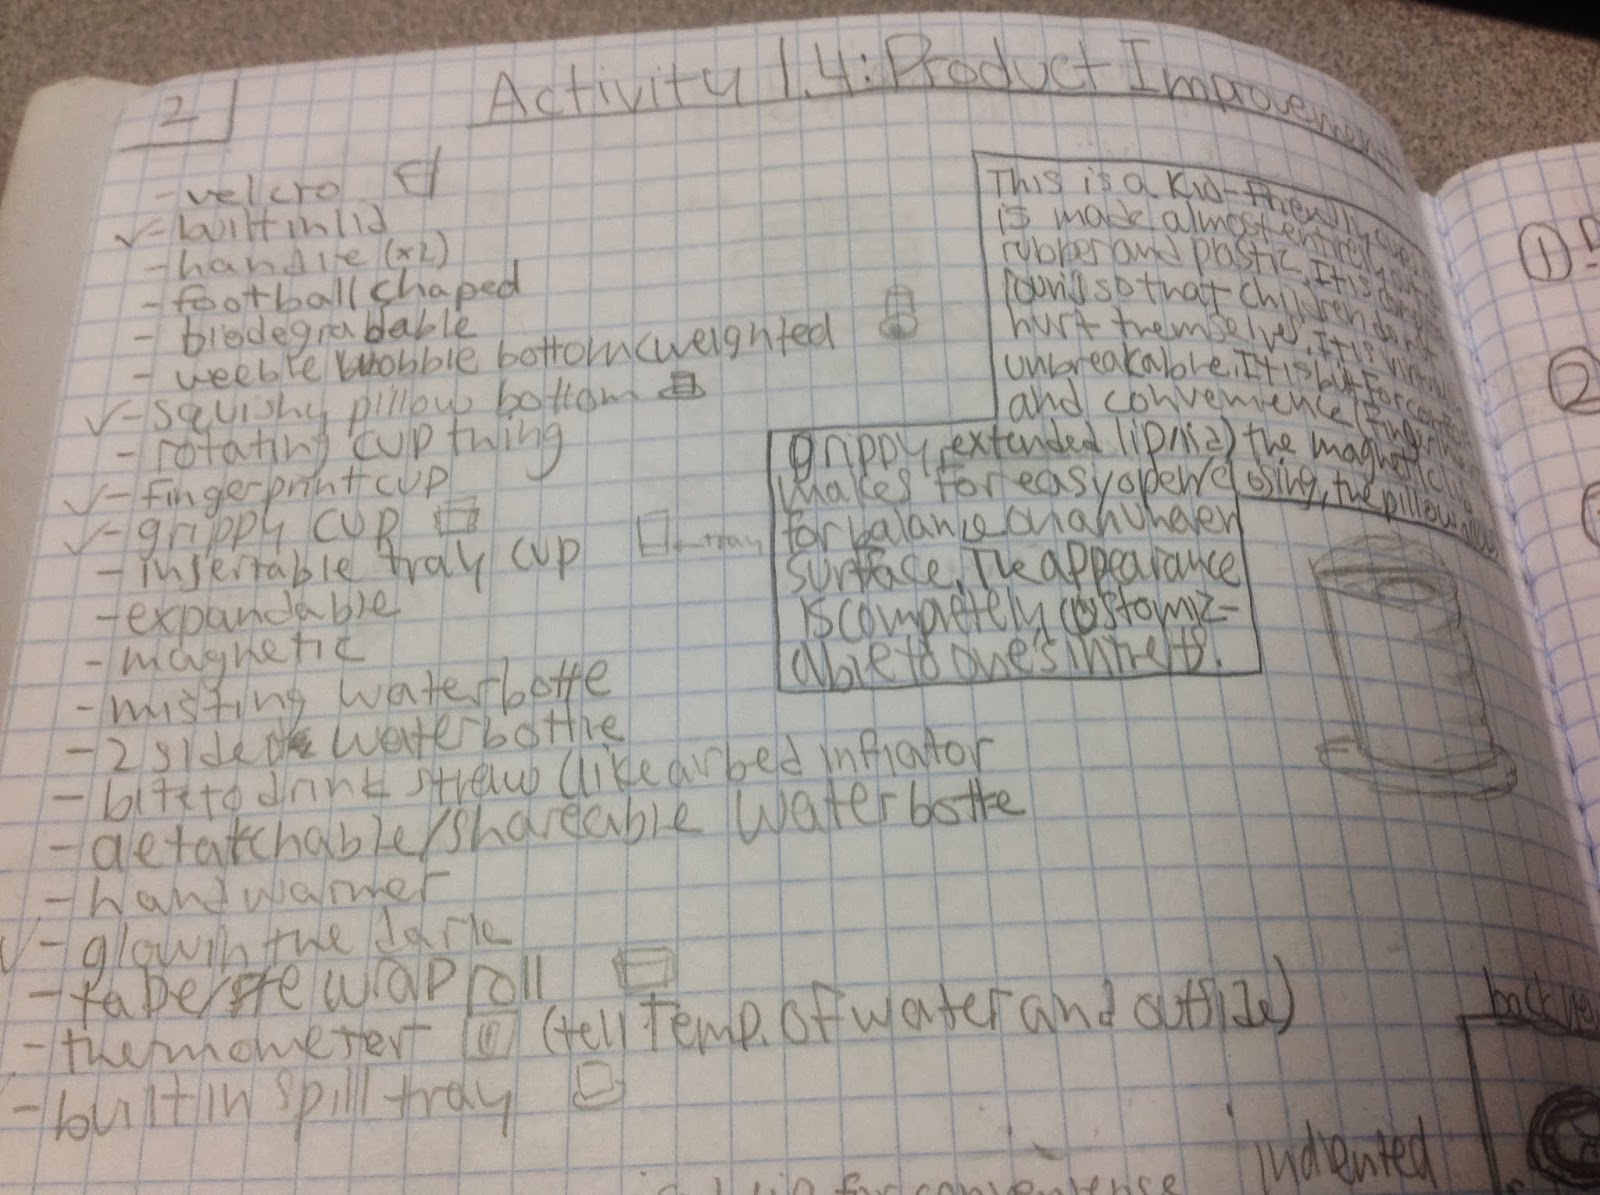 2
Activity 1.4: Product Improvement
- velcro
✓- built in lid
- handle (x2)
- football shaped
- biodegradable
- weeble wobble bottom (weighted
✓- squishy pillow bottom
- rotating cup thing
✓- fingerprint cup
✓- grippy cup
- insertable tray cup
tray
- expandable
- magnetic
- misting waterbottle
- 2 sided waterbottle
- bite to drink straw (like airbed inflator
- detatchable/shareable waterbottle
- hand warmer
✓- glow in the dark
- tape/ wrap roll
- thermometer (tell temp. of water and outside)
- built in spill tray
This is a kid-friendly cup
is made almost entirely out of
rubber and plastic. It is
so that children don't
hurt themselves. It is virtually
unbreakable. It is built for comfort
and convenience (fingerprint
grippy, extended lip/lid) the magnetic
makes for easy open/closing, the pillow allows
for balance on an uneven
surface. The appearance
is completely customiz-
able to one's intrests.
1
2
back view
indented
for convenience